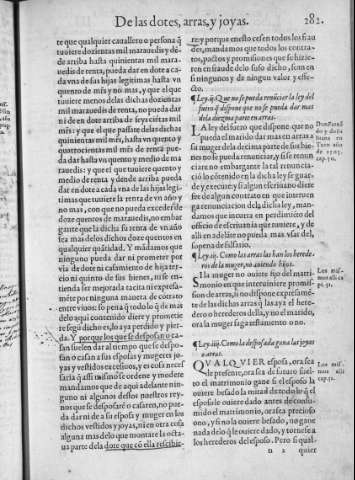 De las dotes, arras, y joyas.
282.
te que qualquier cauallero o persona q̃
tuuiere dozientas mil marauedis y dẽ
de arriba hasta quinientas mil mara-
uedis de renta, pueda dar en dote a ca-
da vna de sus hijas legitimas hasta vn
quento de mr̃s y no mas, y que el que
tuuiere menos delas dichas dozientas
mil marauedis de renta, no pueda dar
ni dè en dote arriba de seyscientas mil
mr̃s: y que el que passare delas dichas
quinientas mil mr̃s, hasta vn quento y
quatrocientas mil mr̃s de rentã pue-
da dar hasta vn quento y medio de ma
rauedis: y que el que tuuiere quento y
medio de renta y dende arriba pueda
dar en dote a cada vna de las hijas legi-
timas que tuuiere la renta de vn año y
no mas, con que no pueda exceder de
doze quentos de marauedis, no embar
gante que la dicha su renta de vn año
sea mas delos dichos doze quentos en
qualquier quãtidad. Y mãdamos que
ninguno pueda dar ni prometer por
via de dote ni casamiento de hija ter-
cio ni quinto de sus bienes, ni se en-
tienda ser mejorada tacita ni expressa-
mẽte por ninguna manera de contrato
entre viuos: so pena q̃ todo lo q̃ de mas
delo aqui contenido diere y prometie
re segũ dicho es, lo aya perdido y pier-
da. Y porque los que se desposan o ca-
san suelen dar al tiempo que se despo-
san o casan a sus esposas y mugeres jo-
yas y vestidos excessiuos, y es cosa neces
saria q̃ assi mismo se ordene y modere
mandamos que de aqui adelante nin-
guno ni algunos destos nuestros rey-
nos que se desposarẽ o casaren, no pue
da dar ni de a su esposa y muger en los
dichos vestidos y joyas, ni en otra cosa
alguna mas delo que montare la octa-
ua parte dela dote que cõ ella rescibie-
re, y porque en esto cessen todos los frau
des, mandamos que todos los contra-
tos, pactos y promissiones que se hizie-
ren en fraude delo suso dicho, sean en
si ningunos y de ningun valor y efe-
cto.
¶ Ley .ij. Que no se pueda renũciar la ley del
fuero q̃ dispone que no se pueda dar mas
dela diezma parte en arras.
LA ley del fuero que dispone que no
pueda el marido dar mas en arras a
su muger dela decima parte de sus bie-
nes no se pueda renunciar, y si se renun
ciare no embargante la tal renuncia-
cio lo cõtenido en la dicha ley se guar-
de y execute: y si algun escriuano diere
fee de algun contrato en que interuen
ga renunciacion dela dicha ley, man-
damos que incurra en perdimiẽto del
officio de escriuania que tuuiere, y de
alli en adelãte no pueda mas vsar del,
so pena de falsario.
¶ Ley .iij. Como las arras las han los herede-
ros dela muger, no auiendo hijos.
SI la muger no ouiere fijo del matri-
monio en que interuiniere promis-
sion de arras, si no dispone expressamẽ-
te de las dichas arras q̃ las aya el here-
dero o herederos della, y no el marido,
ora la muger faga testamento o no.
¶ Ley .iiij. Como la desposada gana las joyas
o arras.
QVALQVIER esposa, ora sea
de presente, ora sea de futuro suel-
to el matrimonio gane si el esposo la
ouiere besado la mitad de todo lo q̃ el
esposo le ouiere dado antes de consumi
do el matrimonio, ora sea precioso
o no, y si no la ouiere besado, no gane
nada delo q̃ le ouiere dado, y tornese a
los herederos del esposo. Pero si qual-
n a
quier